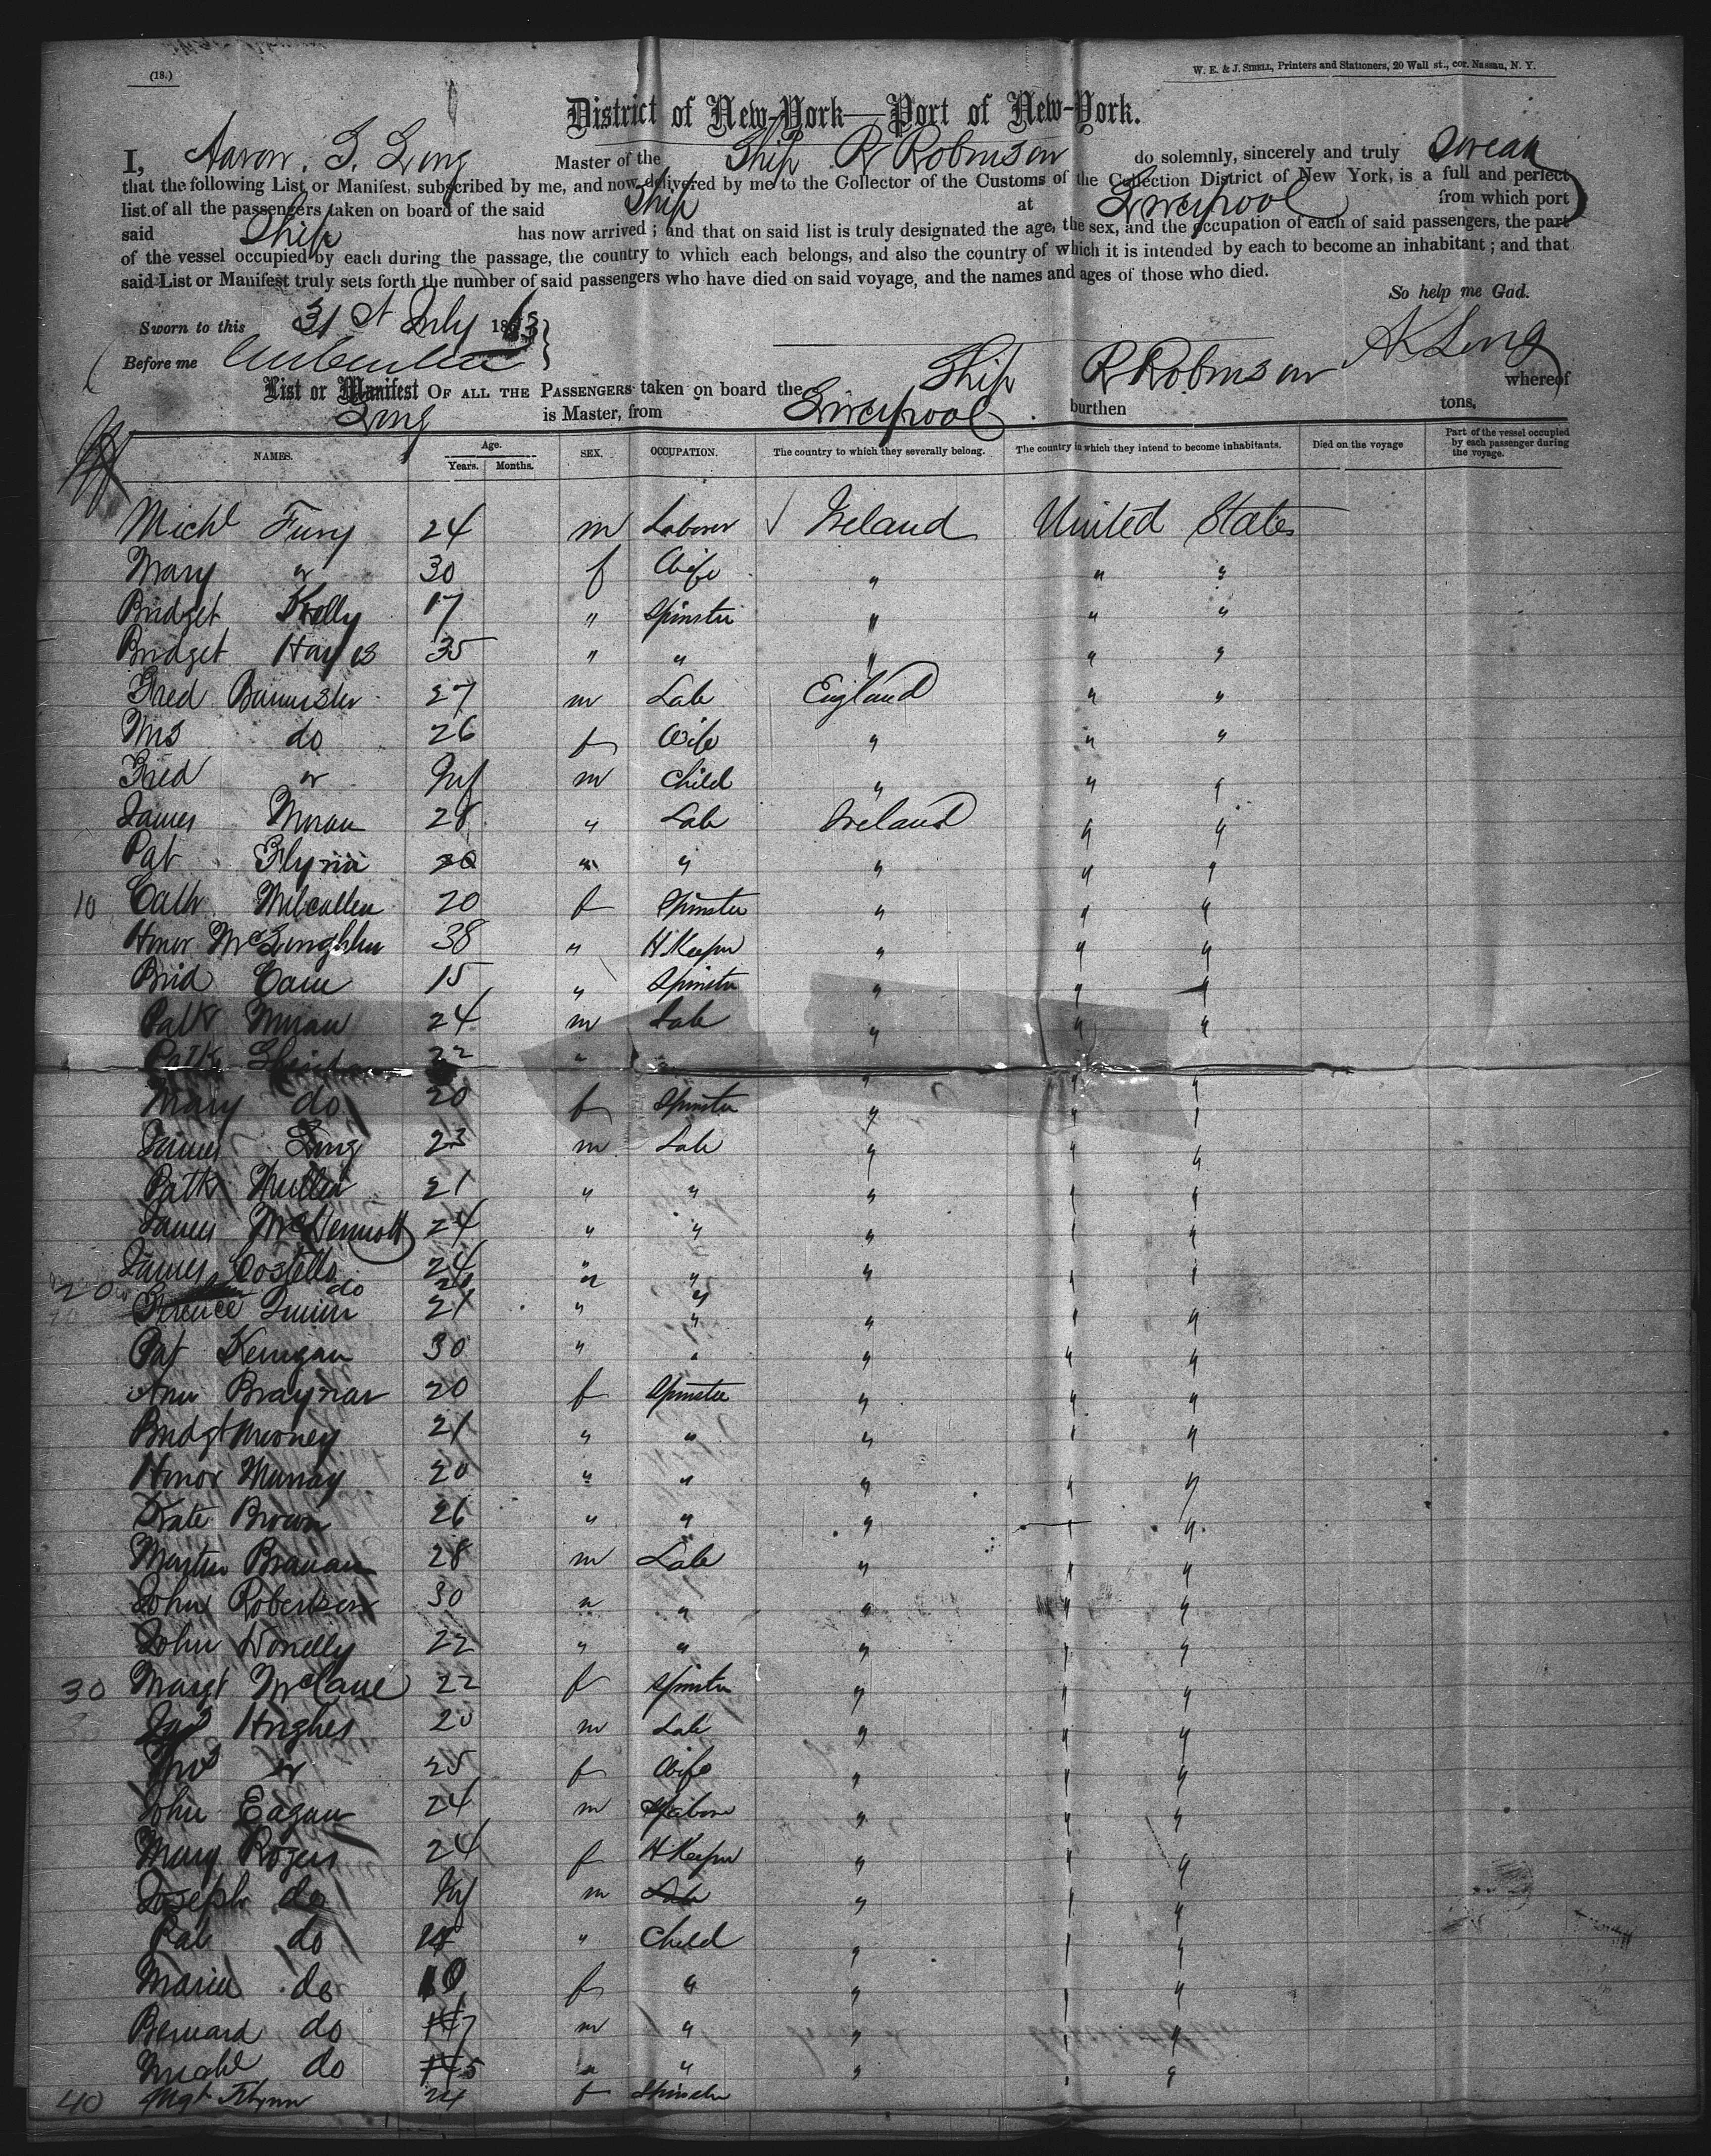 (18.)
W. E. & J. SIBELL, Printers and Stationers, 20 Wall st., cor. Nassau, N. Y.
District of New-York—Port of New-York.
I, Aaron. Long Master of the Ship R Robinson do solemnly, sincerely and truly Swear
that the following List or Manifest, subscribed by me, and now delivered by me to the Collector of the Customs of the Collection District of New York, is a full and perfect
list of all the passengers taken on board of the said Ship at Liverpool from which port
said Ship has now arrived; and that on said list is truly designated the age, the sex, and the occupation of each of said passengers, the part
of the vessel occupied by each during the passage, the country to which each belongs, and also the country of which it is intended by each to become an inhabitant; and that
said List or Manifest truly sets forth the number of said passengers who have died on said voyage, and the names and ages of those who died.
So help me God.
Sworn to this 31st July 1863
Before me
List or Manifest OF ALL THE PASSENGERS taken on board the Ship R Robinson whereof
Long is Master, from Liverpool burthen tons,
NAMES. Age. Years. Months. SEX. OCCUPATION. The country to which they severally belong. The country in which they intend to become inhabitants. Died on the voyage Part of the vessel occupied by each passenger during the voyage.
Michl Fury 24 m Laborer Ireland United States
Mary " 30 f Wife " " "
Bridget Kelly 17 " Spinster " " "
Bridget Hayes 35 " " " " "
Fred Bannister 27 m Lab England " "
Mrs do 26 f Wife " " "
Fred " Inf m Child " " "
James Moran 28 " Lab Ireland " "
Pat Flynn 20 " " " " "
10 Cath 20 f Spinster " " "
Honor McLoughlin 38 " H Keeper " " "
Brid 15 " Spinster " " "
Patk Moran 24 m Lab " " "
Patk 22 " " " " "
Mary do 20 f Spinster " " "
James Long 23 m Lab " " "
Patk Mullin 21 " " " " "
James McDermott 24 " " " " "
James Costello 24 " " " " "
20 do " "
Terence Quinn 21 " " " " "
Pat Kerrigan 30 " " " " "
Ann 20 f Spinster " " "
Bridgt Mooney 21 " " " " "
Honor Murray 20 " " " " "
Kate Brown 26 " " " " "
Martin Branan 28 m Lab " " "
John Robertson 30 " " " " "
John Donelly 22 " " " " "
30 Margt McCane 22 f Spinster " " "
Jas Hughes 20 m Lab " " "
Mrs " 25 f Wife " " "
John Eagan 24 m Labor " " "
Mary Rogers 24 f H Keeper " " "
Joseph do Inf m Lab " " "
Pat do " Child " " "
Maria do 10 f " " " "
Bernard do 7 m " " " "
Michl do 5 " " " " "
40 Mgt Flynn 24 f Spinster